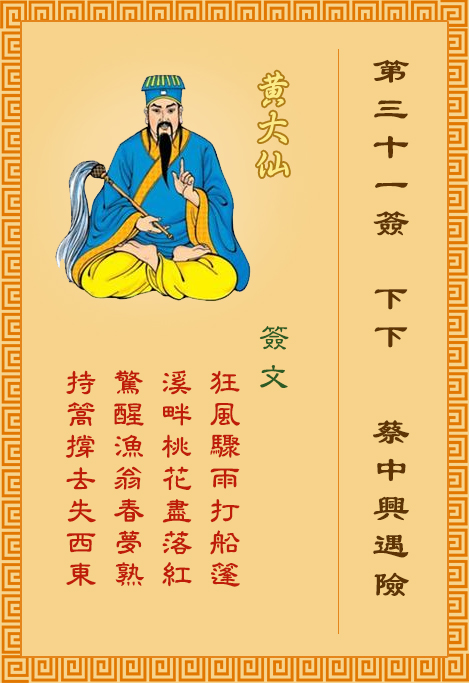 第三十一簽 下下 蔡中興遇險
黃大仙
簽文
狂風驟雨打船篷
溪畔桃花盡落紅
驚醒漁翁春夢熟
持篙撐去失西東